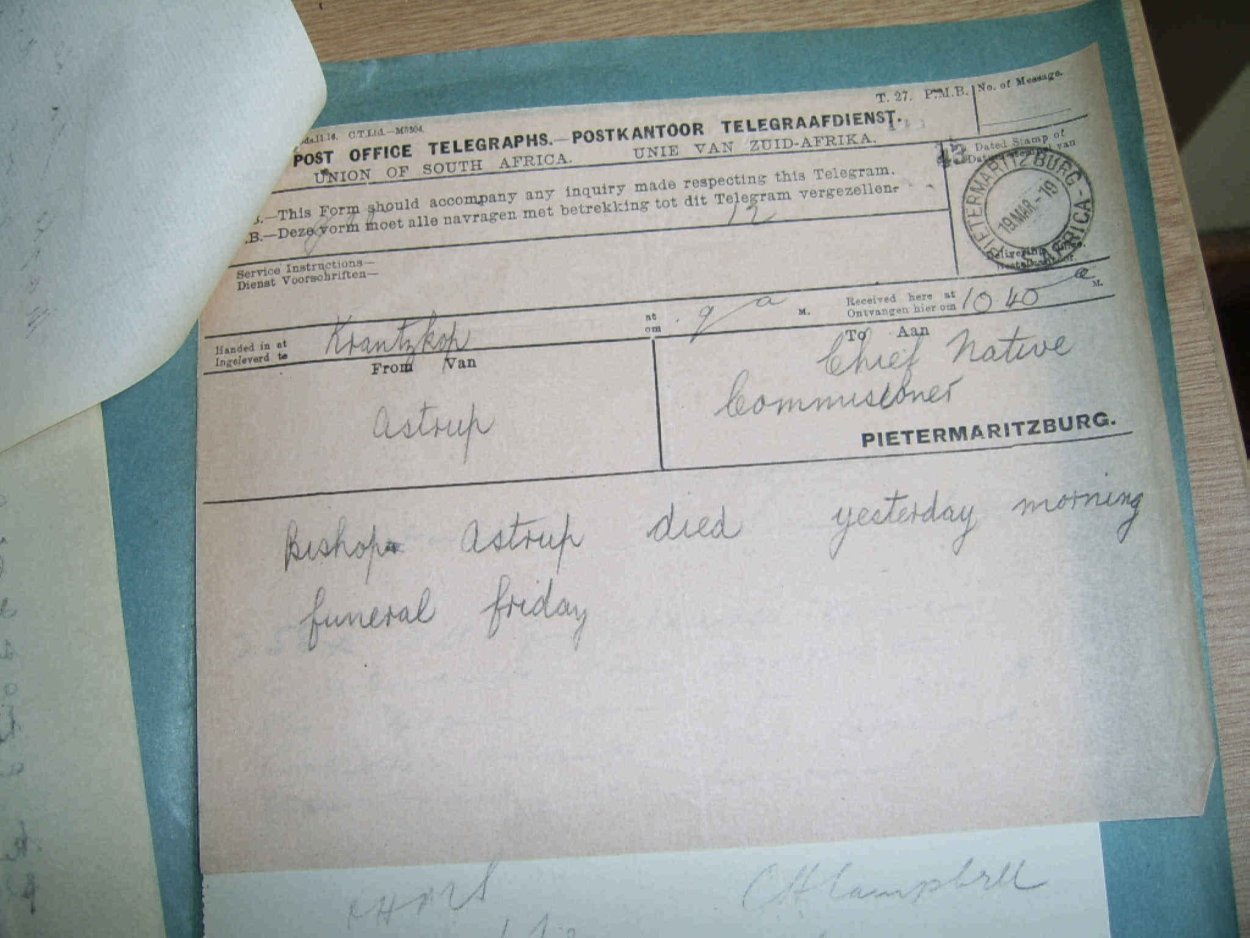 C.T.Ltd.—M5304.
T. 27. P.M.B.
No. of Message.
POST OFFICE TELEGRAPHS.—POSTKANTOOR TELEGRAAFDIENST.
UNION OF SOUTH AFRICA. UNIE VAN ZUID-AFRIKA.
43
Dated Stamp of
.—This Form should accompany any inquiry made respecting this Telegram.
.B.—Deze vorm moet alle navragen met betrekking tot dit Telegram vergezellen.
12
PIETERMARITZBURG
19 MAR 19
AFRICA
Service Instructions—
Dienst Voorschriften—
Handed in at
Ingeleverd te
Krantzkop
at
om
9 a
M.
Received here at
Ontvangen hier om
10 40 a
M.
From Van
To Aan
Astrup
Chief Native
Commissioner
PIETERMARITZBURG.
Bishop Astrup died yesterday morning
funeral friday
OHMS
CHCampbell